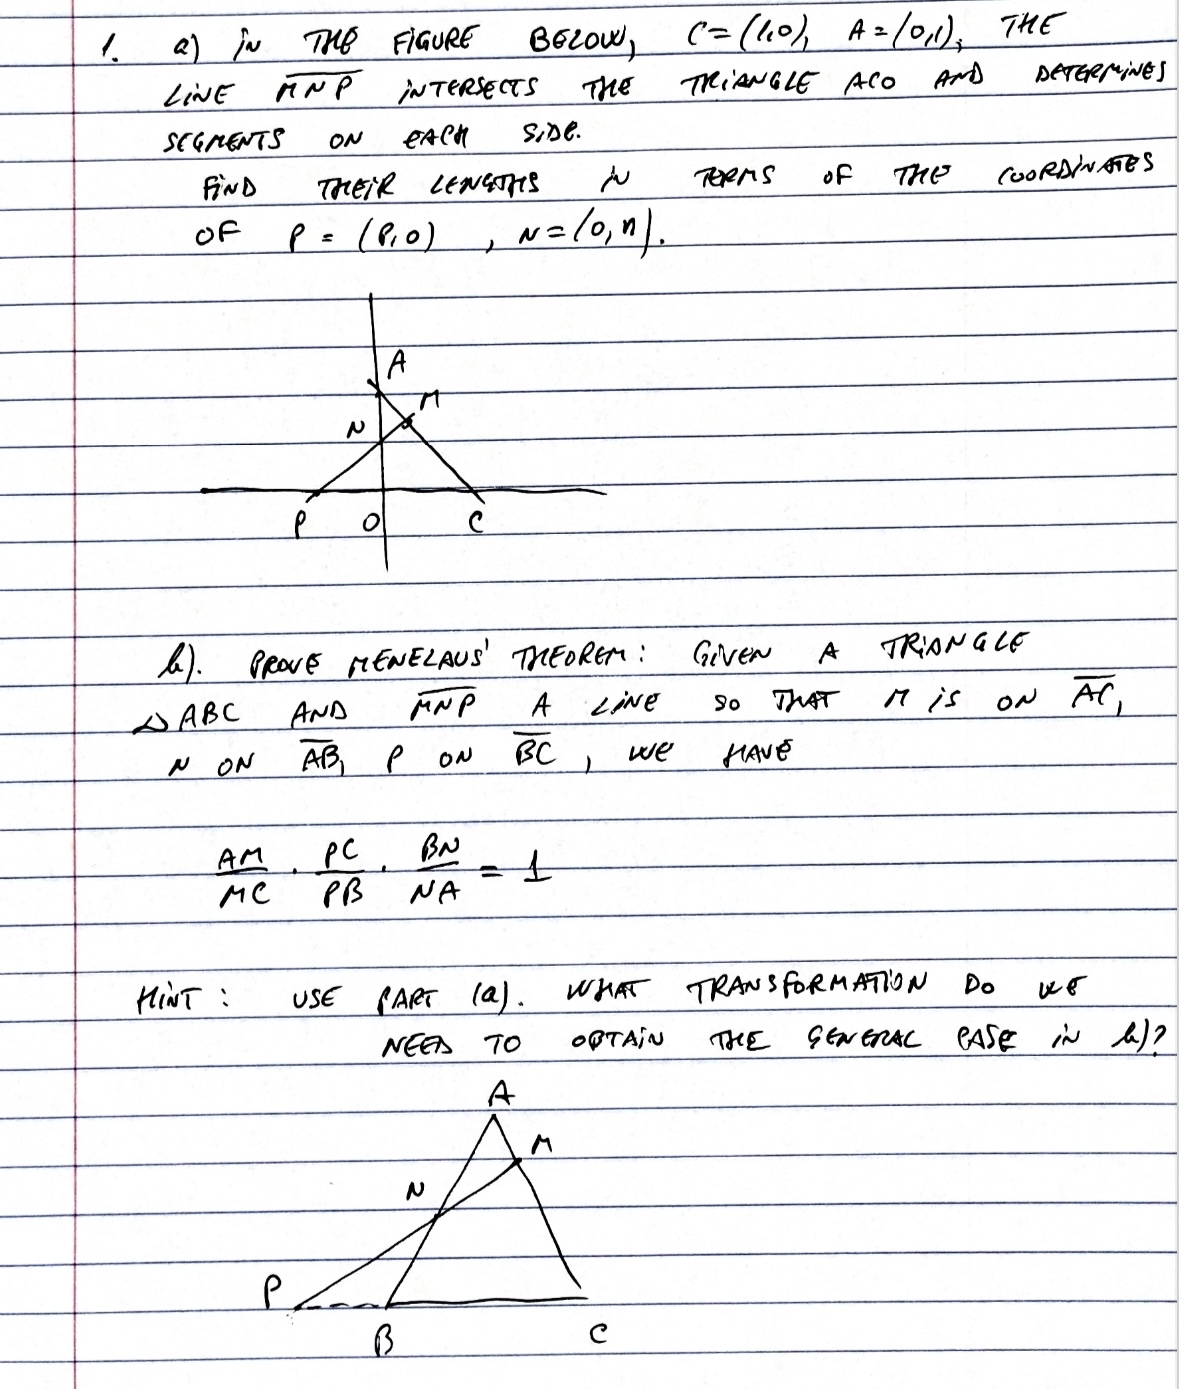 1. a) IN THE FIGURE BELOW, C = (1,0), A = (0,1), THE
LINE MNP INTERSECTS THE TRIANGLE ACO AND DETERMINES
SEGMENTS ON EACH SIDE.
FIND THEIR LENGTHS IN TERMS OF THE COORDINATES
OF P = (P,0) , N = (0,n).
A
M
N
P O C
b). PROVE MENELAUS' THEOREM: GIVEN A TRIANGLE
△ABC AND MNP A LINE SO THAT M IS ON AC,
N ON AB, P ON BC, WE HAVE
AM/MC · PC/PB · BN/NA = 1
HINT: USE PART (a). WHAT TRANSFORMATION DO WE
NEED TO OBTAIN THE GENERAL CASE IN b)?
A
M
N
P
B C